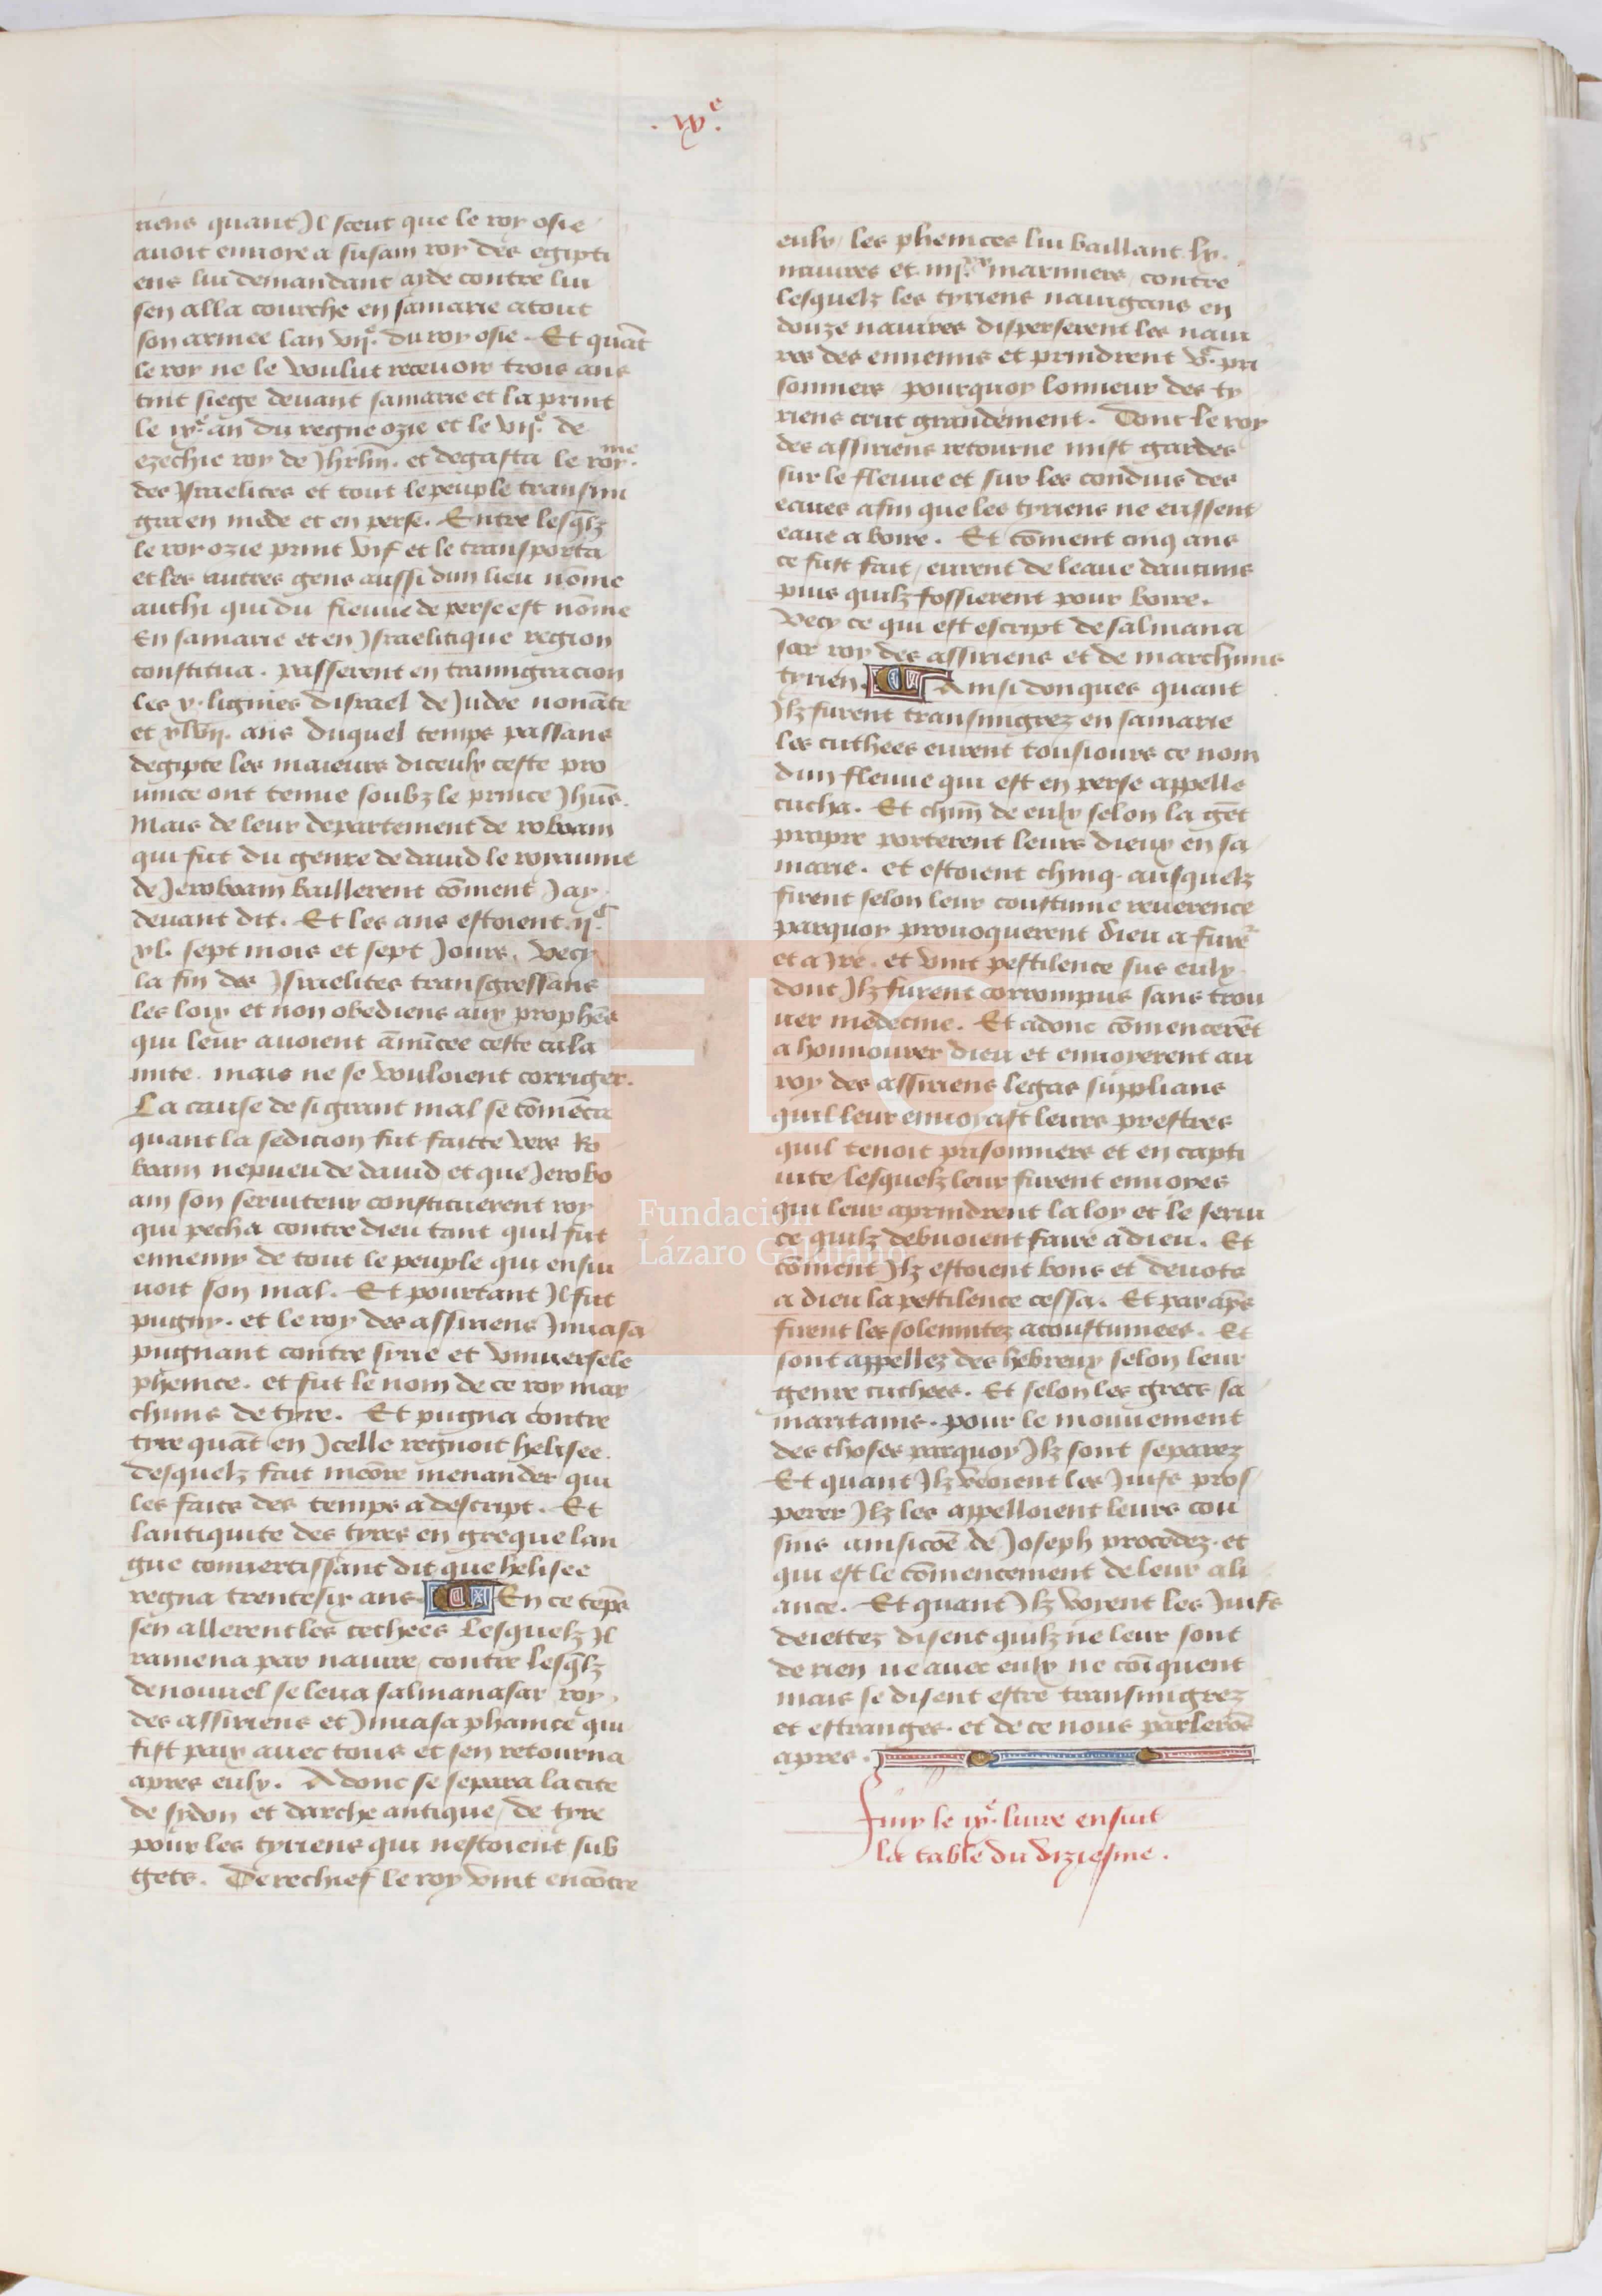 .ix.e
95
riens quant Il sceut que le roy osie
auoit enuoie a susam roy des egipti
ens lui demandant ayde contre lui
sen alla courche en samarie atout
son armee lan vii.e du roy osie. Et quāt
le roy ne le voulut receuoir trois ans
tint siege deuant samarie et la print
le ix.e an du regne ozie et le vii.e de
ezechie roy de Jhrlm̄. et degasta le roy.me
des Israelites et tout le peuple transmi
gra en mede et en perse. Entre lesq̄lz
le roy ozie print vif et le transporta
et les autres gens aussi dun lieu nōme
authi qui du fleuue de perse est nōme
En samarie et en Israelitique region
constitua. passerent en transmigracion
les x. lignies disrael de Judee nonāte
et xlvii. ans duquel temps passans
degipte les maieurs diceulx ceste pro
uince ont tenue soubz le prince Jhūs.
Mais de leur departement de roboam
qui fut du genre de dauid le royaume
de Jeroboam baillerent cōment Jay
deuant dit. Et les ans estoient .ii.c
xl. sept mois et sept Jours. Vecy
la fin des Israelites transgressans
les loix et non obediens aux prophēs
qui leur auoient ānūcee ceste cala
mite. mais ne se vouloient corriger.
La cause de si grant mal se cōmēca
quant la sedicion fut faitte vers Ro
boam nepueu de dauid et que Jerobo
am son seruiteur constituerent roy
qui pecha contre dieu tant quil fut
ennemy de tout le peuple qui ensui
uoit son mal. Et pourtant Il fut
pugny. et le roy des assiriens Inuasa
pugnant contre sirie et vniuersele
phenice. et fut le nom de ce roy mar
chuns de tyre. Et pugna contre
tyre quāt en Icelle regnoit helisee.
desquelz fait meōre menander qui
les fais des temps a descript. Et
lantiquite des tyres en greque lan
gue conuertissant dit que helisee
regna trentesix ans. En ce tēps
sen allerent les cethees Lesquelz Il
ramena par nauire contre lesq̄lz
denouuel se leua salmanasar roy
des assiriens et Inuasa phanice qui
fist paix auec tous et sen retourna
apres eulx. Adonc se separa la cite
de sydon et darche antique de tyre
pour les tyriens qui nestoient sub
gets. Derechief le roy vint encōtre
eulx / les phenices lui baillant lx.
nauires et iii.xx mariniers / contre
lesquelz les tyriens nauigans en
douze nauires disperserent les naui
res des ennemis et prindrent v.c pri
sonniers / pourquoy lonneur des ty
riens crut grandement. Dont le roy
des assiriens retourne mist gardes
sur le fleuue et sur les conduis des
eaues afin que les tyriens ne eussent
eaue a boire. Et cōment cinq ans
ce fust fait / eurent de leaue daucuns
puis quilz fossierent pour boire.
Vecy ce qui est escript de salmana
sar roy des assiriens et de marchuns
tyrien. Ainsi donques quant
Ilz furent transmigrez en samarie
les cuthees eurent tousiours ce nom
dun fleuue qui est en perse appelle
cucha. Et chūn de eulx selon la gēt
propre porterent leurs dieux en sa
marie. et estoient chinq. ausquelz
firent selon leur coustume reuerence
parquoy prouoquerent dieu a fure^r
et a Ire. et vint pestilence sus eulx
dont Ilz furent corrompus sans trou
uer medecine. Et adonc cōmencerēt
a honnourer dieu et enuoyerent au
roy des assiriens legas supplians
quil leur enuoyast leurs prestres
quil tenoit prisonniers et en capti
uite / lesquelz leur furent enuoyes
qui leur aprindrent la loy et le serui
ce quilz debuoient faire a dieu. Et
cōment Ilz estoient bons et deuots
a dieu la pestilence cessa. Et par ap̄s
firent les solennitez acoustumees. Et
sont appellez des hebreux selon leur
genre cuthees. Et selon les grecs sa
maritains. pour le mouuement
des choses parquoy Ilz sont separez
Et quant Ilz veoient les Juifs pros
perer Ilz les appelloient leurs cou
sins ainsicōe de Joseph procedez. et
qui est le cōmencement de leur ali
ance. Et quant Ilz voyent les Juifs
deiettez disent quilz ne leur sont
de rien ne auec eulx ne cōiquent
mais se disent estre transmigrez
et estranges. et de ce nous parlerōs
apres.
Finy le ix.e liure ensuit
la table du diziesme.
Fundación
Lázaro Galdiano